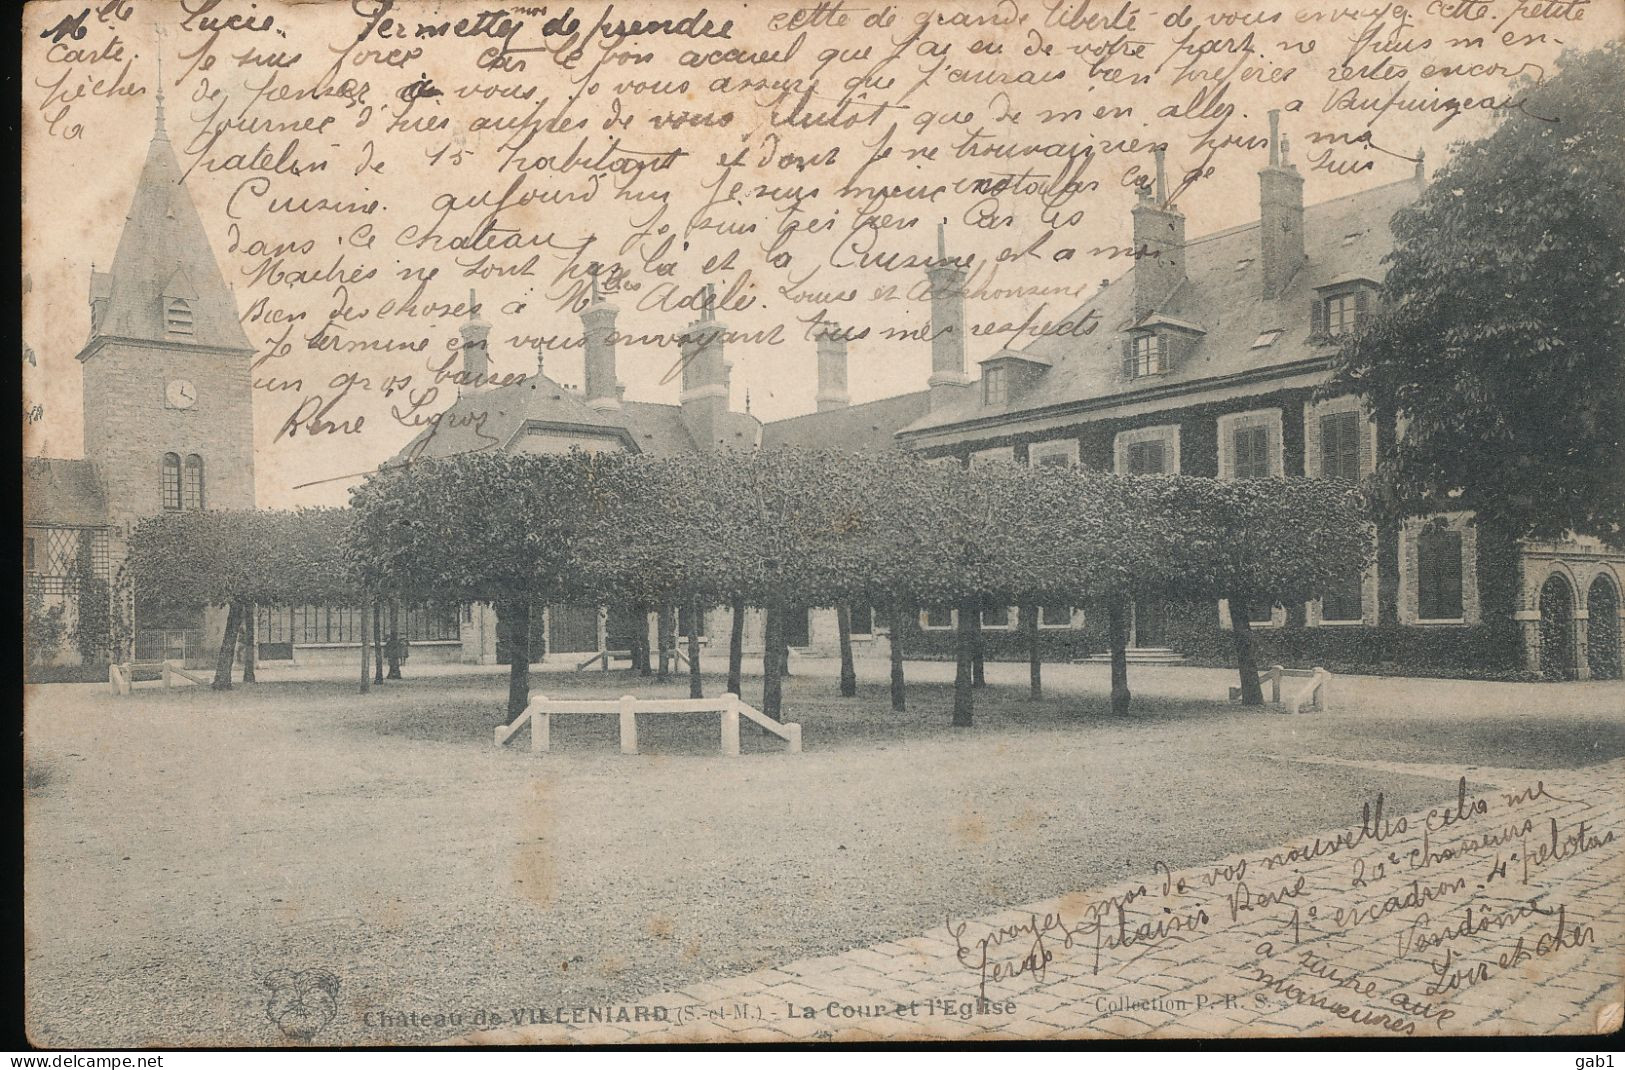 Mlle Lucie. Permettez moi de prendre cette de grande liberté de vous envoyez cette petite
carte. Je suis forcé car le bon accueil que j'ai eu de votre part ne puis m'en-
pêcher de penser a vous, Je vous assure que j'aurais bien préférer restes encore
la journée d'hier auprès de vous plutôt que de m'en aller a
patelin de 15 habitant et dont je ne trouvais rien pour ma
Cuisine. aujourd'hui je suis mieux installer car je suis
dans le chateau, Je suis très bien. Car les
Maitres ne sont pas là et la Cuisine est a moi.
Bien des choses à Mlles Adèle. Louise et Alphonsine
Je termine en vous envoyant tous mes respects et
un gros baiser.
René Legros
Envoyez moi de vos nouvelles cela me
feras plaisir René 20e chasseurs
1e escadron. 4e peloton
Vendôme
Loir et cher
a suivre aux
manoeuvres
Château de VILLENIARD (S.-et-M.) - La Cour et l'Eglise
Collection P. R. S.
gab1